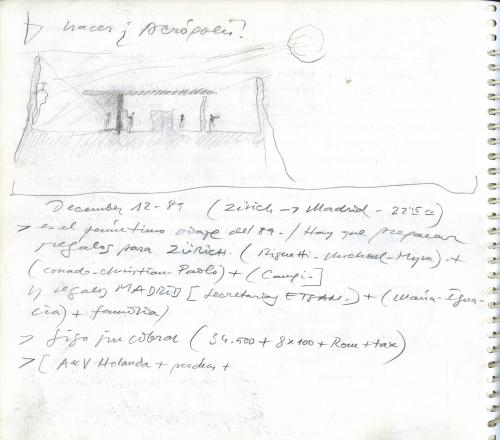 hacer ¿ Acrópolis?
December 12-89 (Zürich → Madrid - 22'15
> es el penúltimo viaje del 89. / Hay que preparar
regalos para ZÜRICH. ( - Michael - Myra) +
( - Christian - Paolo) + (Campi-]
y regalos MADRID [ secretarias ETSAM.) + (María-Igna-
cia) + familia)
> sigo sin cobrar (34.500 + 8x100 + Rom + tax)
> [ A&V Holanda + +